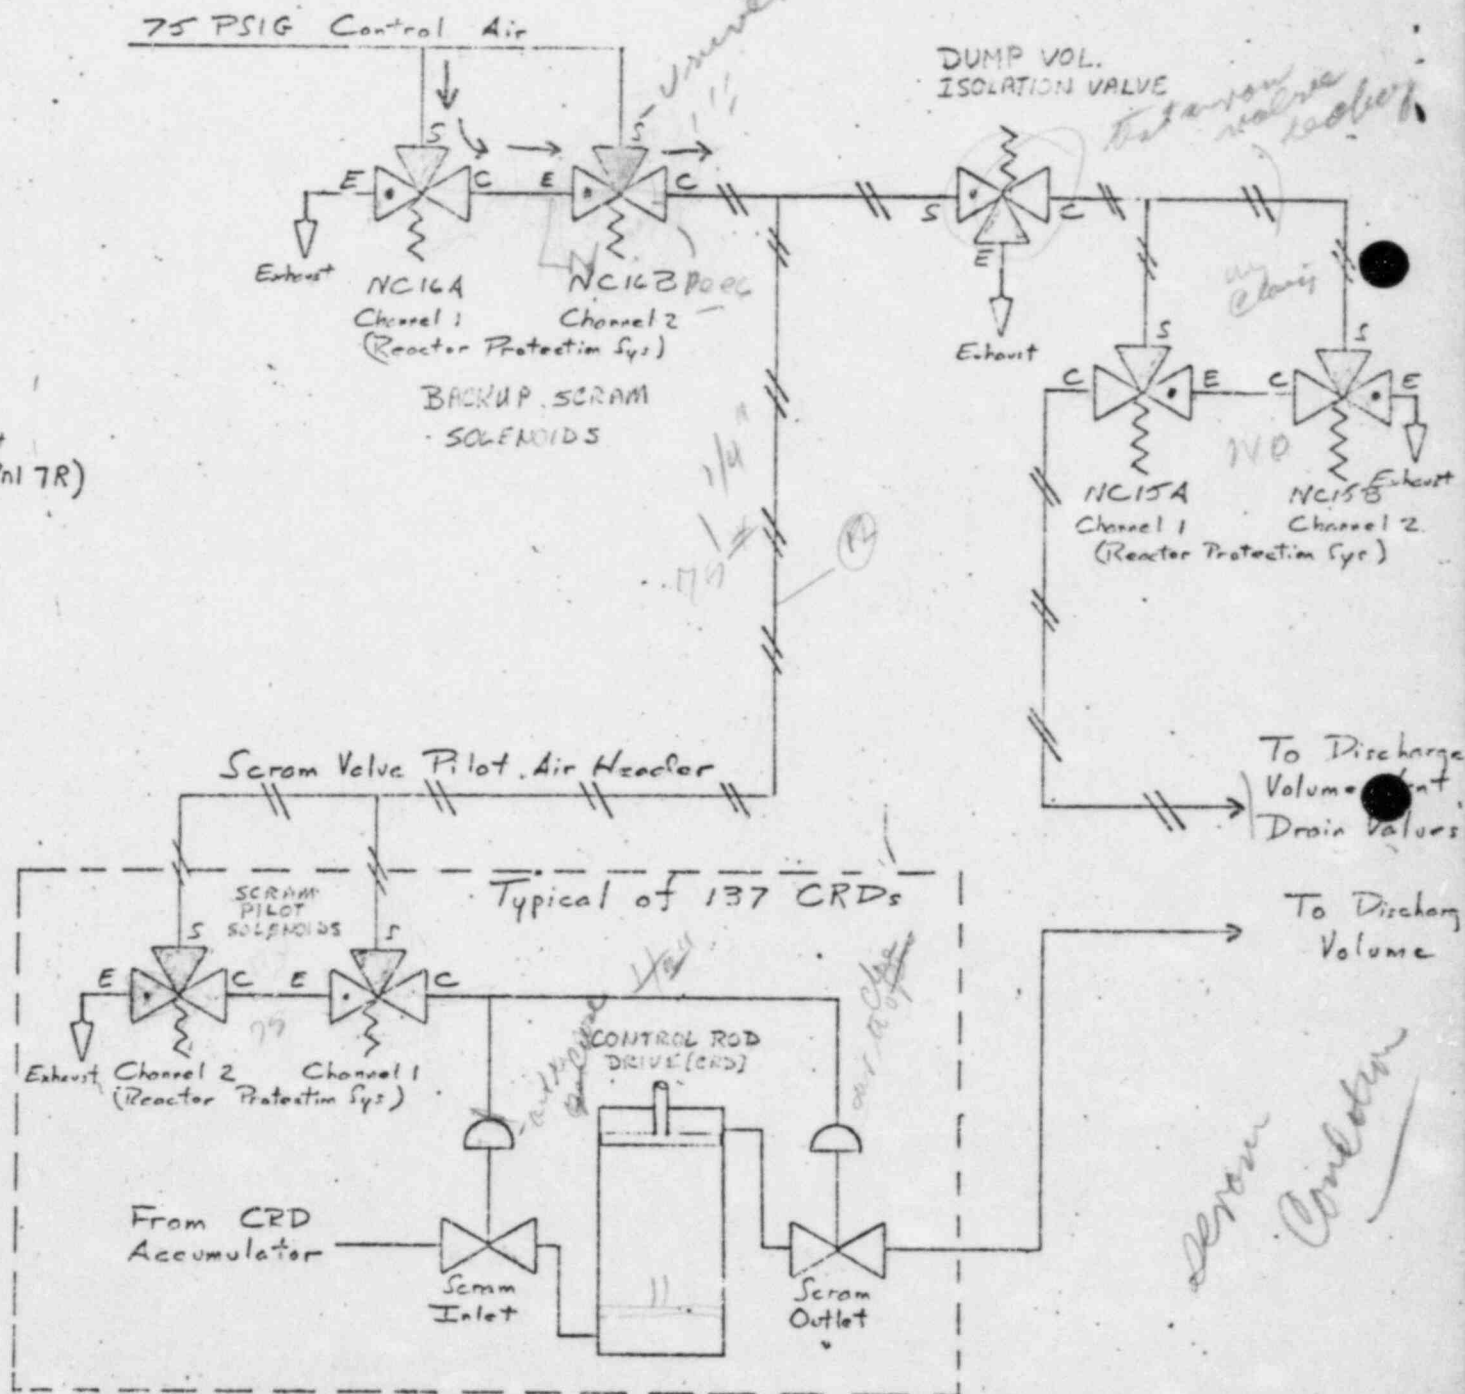 75 PSIG Control Air
DUMP VOL.
ISOLATION VALVE
S
S
E
C
E
C
S
C
E
Exhaust
NC16A
Channel 1
NC16B
Channel 2
(Reactor Protection Sys)
BACKUP SCRAM
SOLENOIDS
Exhaust
S
S
C
E
C
E
NO
NC15A
Channel 1
NC15B
Channel 2
Exhaust
(Reactor Protection Sys)
7R)
1/4"
75
Scram Valve Pilot Air Header
To Discharge
Volume
Drain Valves
Typical of 137 CRDs
SCRAM
PILOT
SOLENOIDS
S
S
E
C
E
C
75
1/2"
Exhaust
Channel 2
Channel 1
(Reactor Protection Sys)
CONTROL ROD
DRIVE (CRD)
To Discharg
Volume
From CRD
Accumulator
Scram
Inlet
Scram
Outlet
scram
Condition